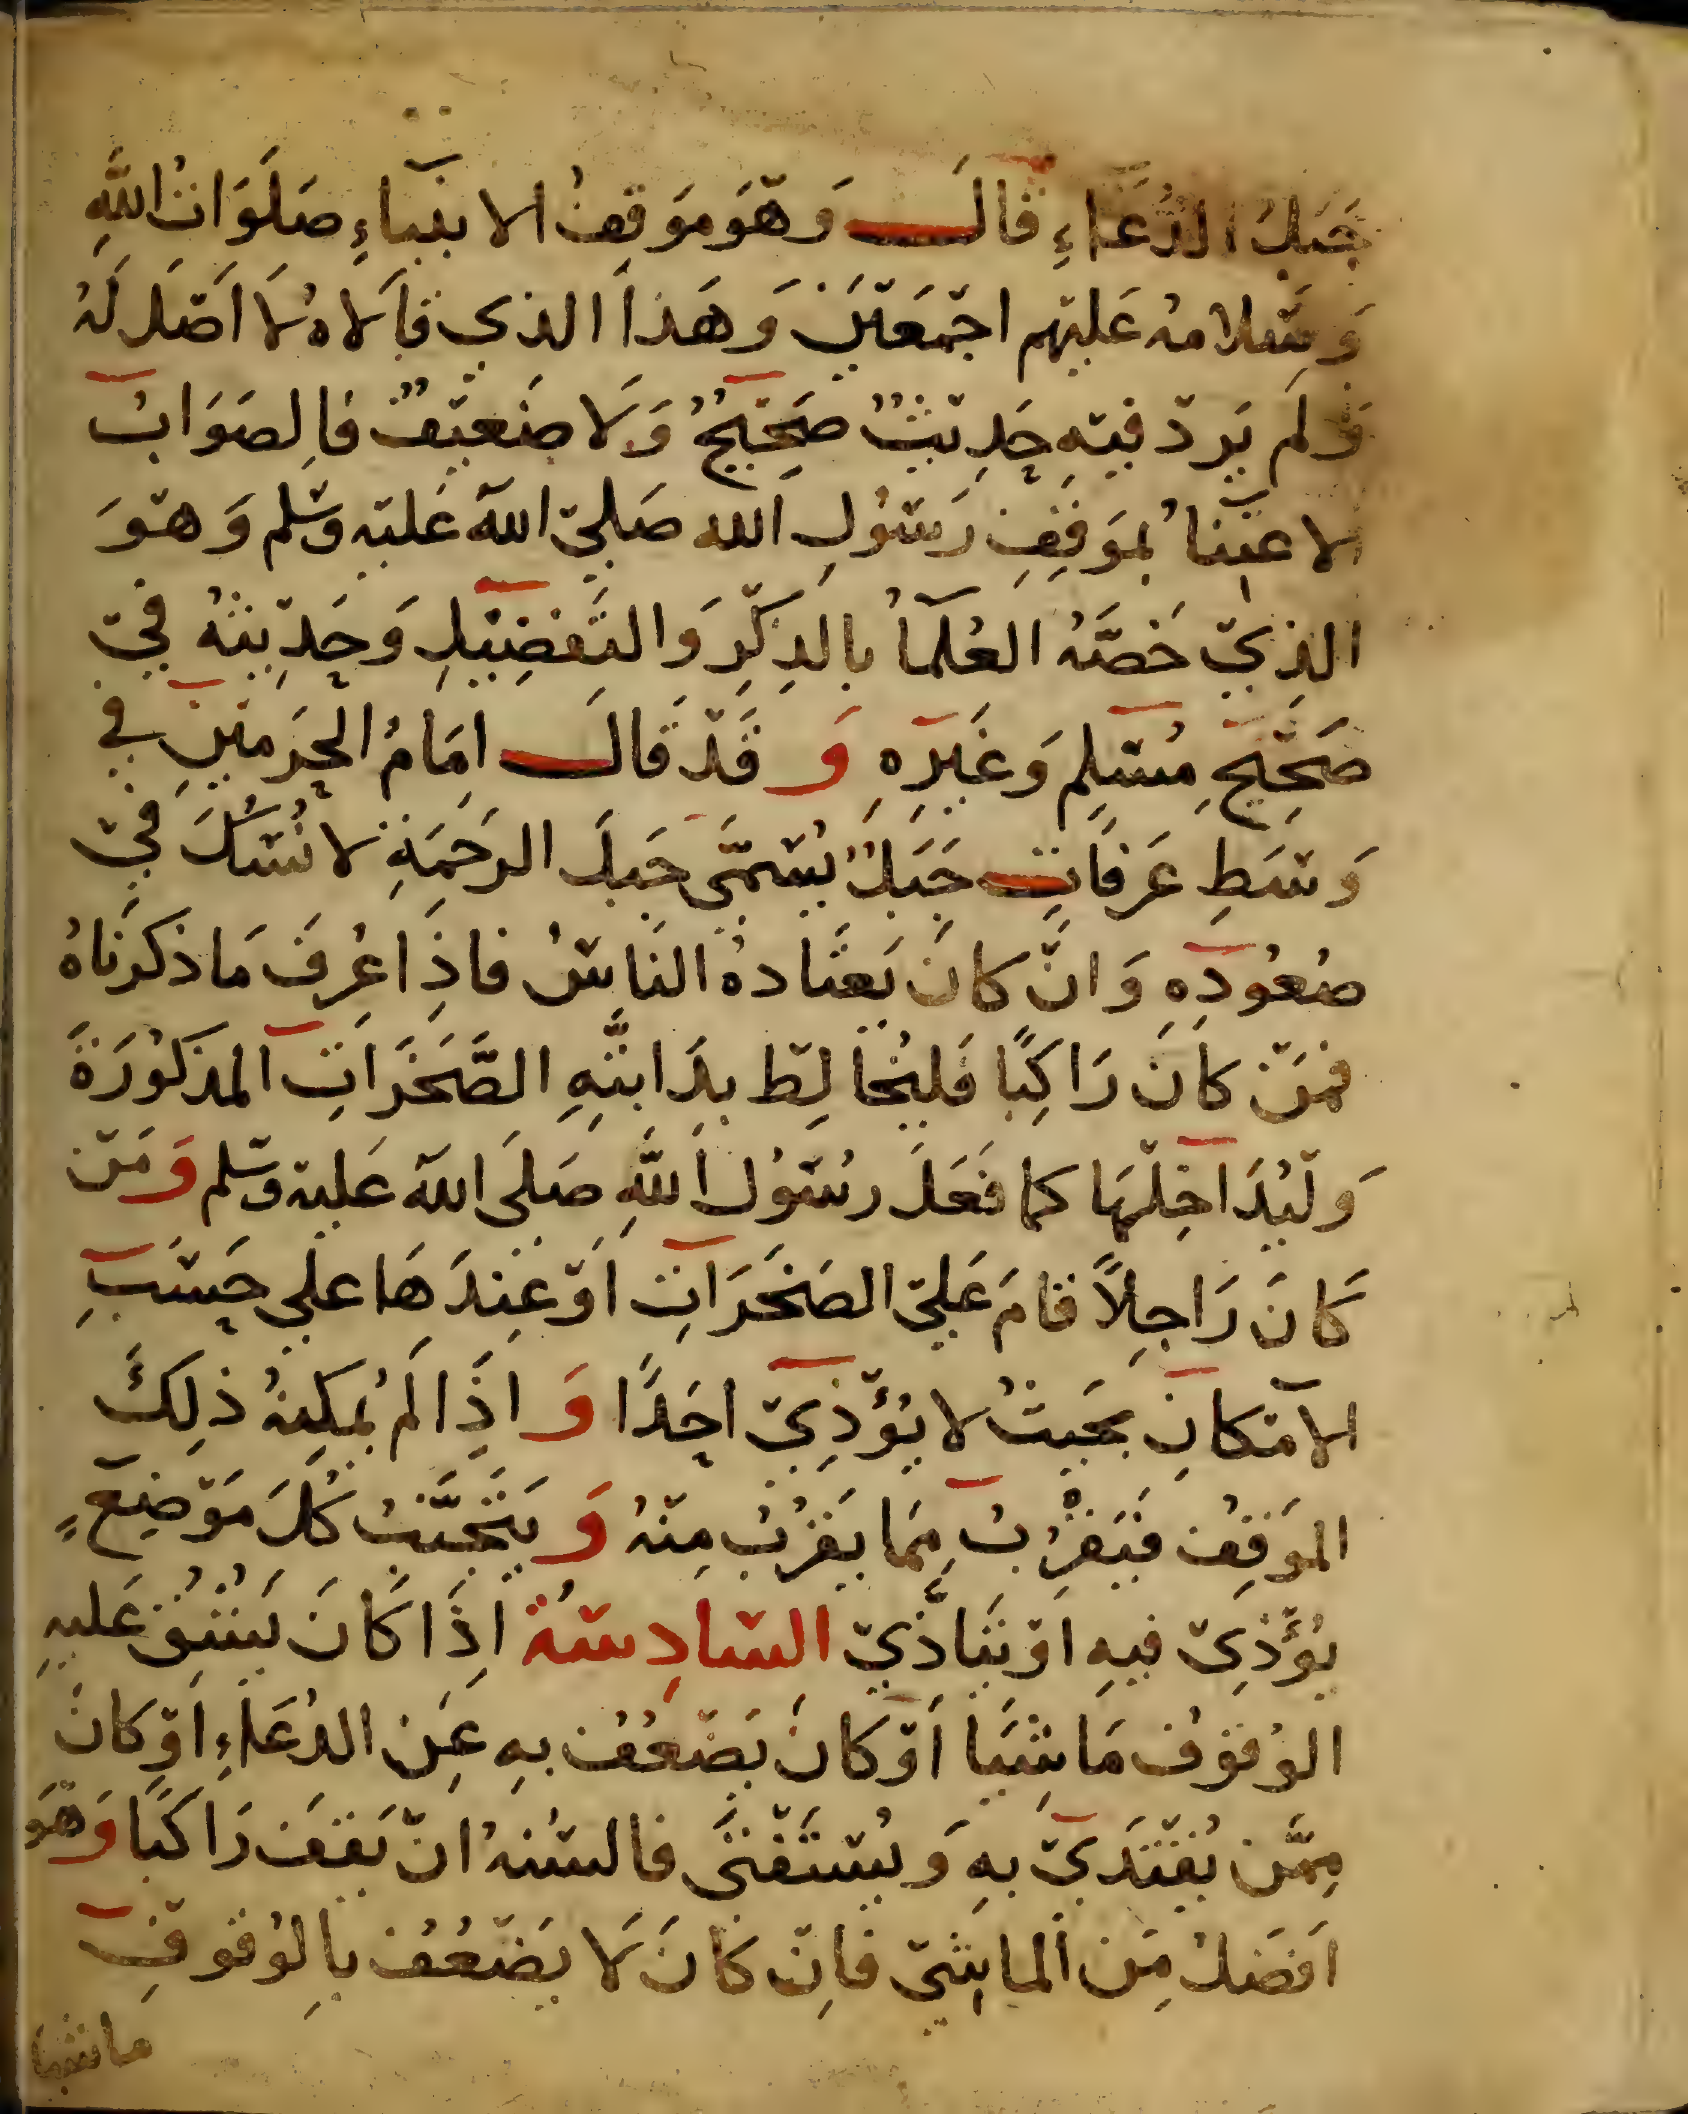 جَبَلُ الدُّعَاءِ قَالَ وَهْوَ مَوَقِفُ الانبيآءِ صَلَوَاتُ اللَّهِ
وَسَلامهُ عَليْهم اجْمَعيْنَ وَهَذَا الذي قاَلاهُ لاَ اَصْلَ لَهُ
وَلَم يَردْ فيْهِ حَدِيْثٌ صَحِيْحٌ وَلَا ضَعيْفٌ فالِصَوَابُ
الاعتنآُ بمَوَقِفِ رَسْوُلِ الله صَليّ اللهَ عَليْهِ وسْلم وَهْوَ
الذِيْ خَصَّهُ العُلَمآُ بالذِكْرِ وَالتَفضِيْلِ وَحَدِيْثهُ فيْ
صَحِيْحِ مُسْلِم وَغَيْرِهِ وَ قَدْ قَالَ امَامُ الحرَمَيْنِ في
وَسْطِ عَرَفَاتٍ جَبَلٌ يُسْمَّى جَبلَ الرَحَمَةِ لا نُسْكَ فيْ
صُعُودِهِ وَانْ كانَ يَعتَادهُ النَاسْ فاذِا عُرِفَ مَا ذكرَناهُ
فَمَنْ كانَ رَاكِبًا فَليُخالِطْ بِدَابَّتِهِ الصَّخَرَاتِ المذكوُرَةَ
وَلْيُدَاخِلْهَا كما فَعَلَ رسْوُل اللَّهِ صَلَى اللهَ عَليْه وسْلم وَمَنْ
كَانَ رَاجِلاً قامَ عَليْ الصَخَرَاتِ اَوْ عِندَهَا علي حَسْبِ
الامْكانِ بحَيثُ لا يُؤْذِيْ احَدًا وَ اذَِا لَم يُمكِنهُ ذلِكَ
المَوقِفُ فيَقْرُبُ مِمَا يَقرُبُ مِنْهُ وَ يَتَجَنَّبُ كُلَ مَوْضِعٍ
يُؤْذِيْ فيهِ اوْ يَتاذَّيْ السْادِسْةُ اذِاَ كَانَ يَشُقُ عَليهِ
الوُقوُف مَاشِيَا اَوْ كانَ يَضْعُفُ بهِ عَنِ الدُعَاءِ اوْ كانَ
مِمَّن يُقتَدَيْ بهِ وَيُسْتَفْتَى فالسْنهُ انْ يَقفَ رَاكبًا وَهْوَ
اَفضَلُ مِنَ الماشِيْ فاِنْ كانَ لَا يَضْعُفُ بِالوُقوفِ
ماشيا